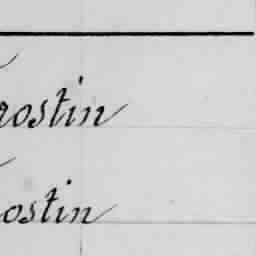 rostin
ostin